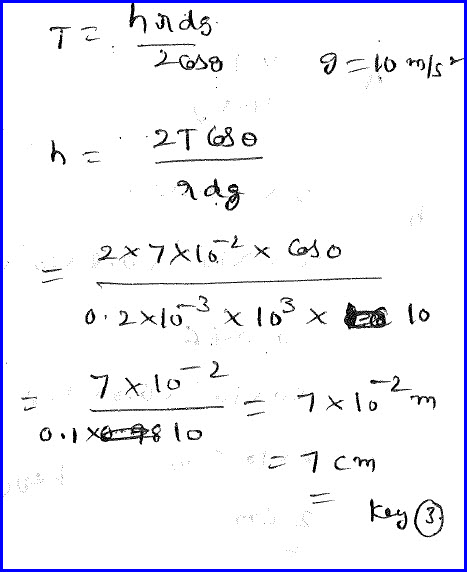 T = hrdg / 2cosθ
g = 10 m/s²
h = 2T cosθ / rdg
= 2 × 7 × 10⁻² × cos0 / 0.2 × 10⁻³ × 10³ × 10
= 7 × 10⁻² / 0.1 × 10 = 7 × 10⁻² m
= 7 cm
=
Key ③